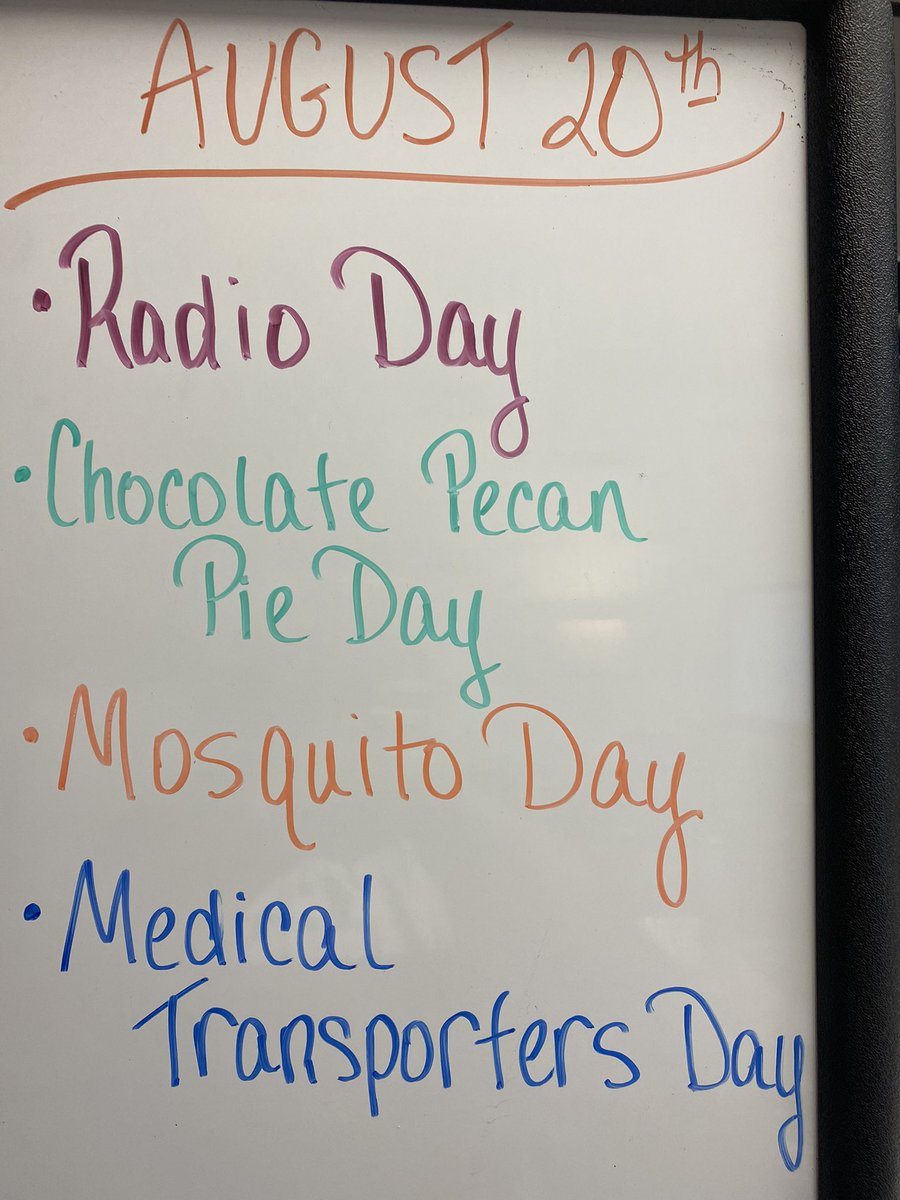 AUGUST 20th
• Radio Day
• Chocolate Pecan
Pie Day
• Mosquito Day
• Medical
Transporters Day